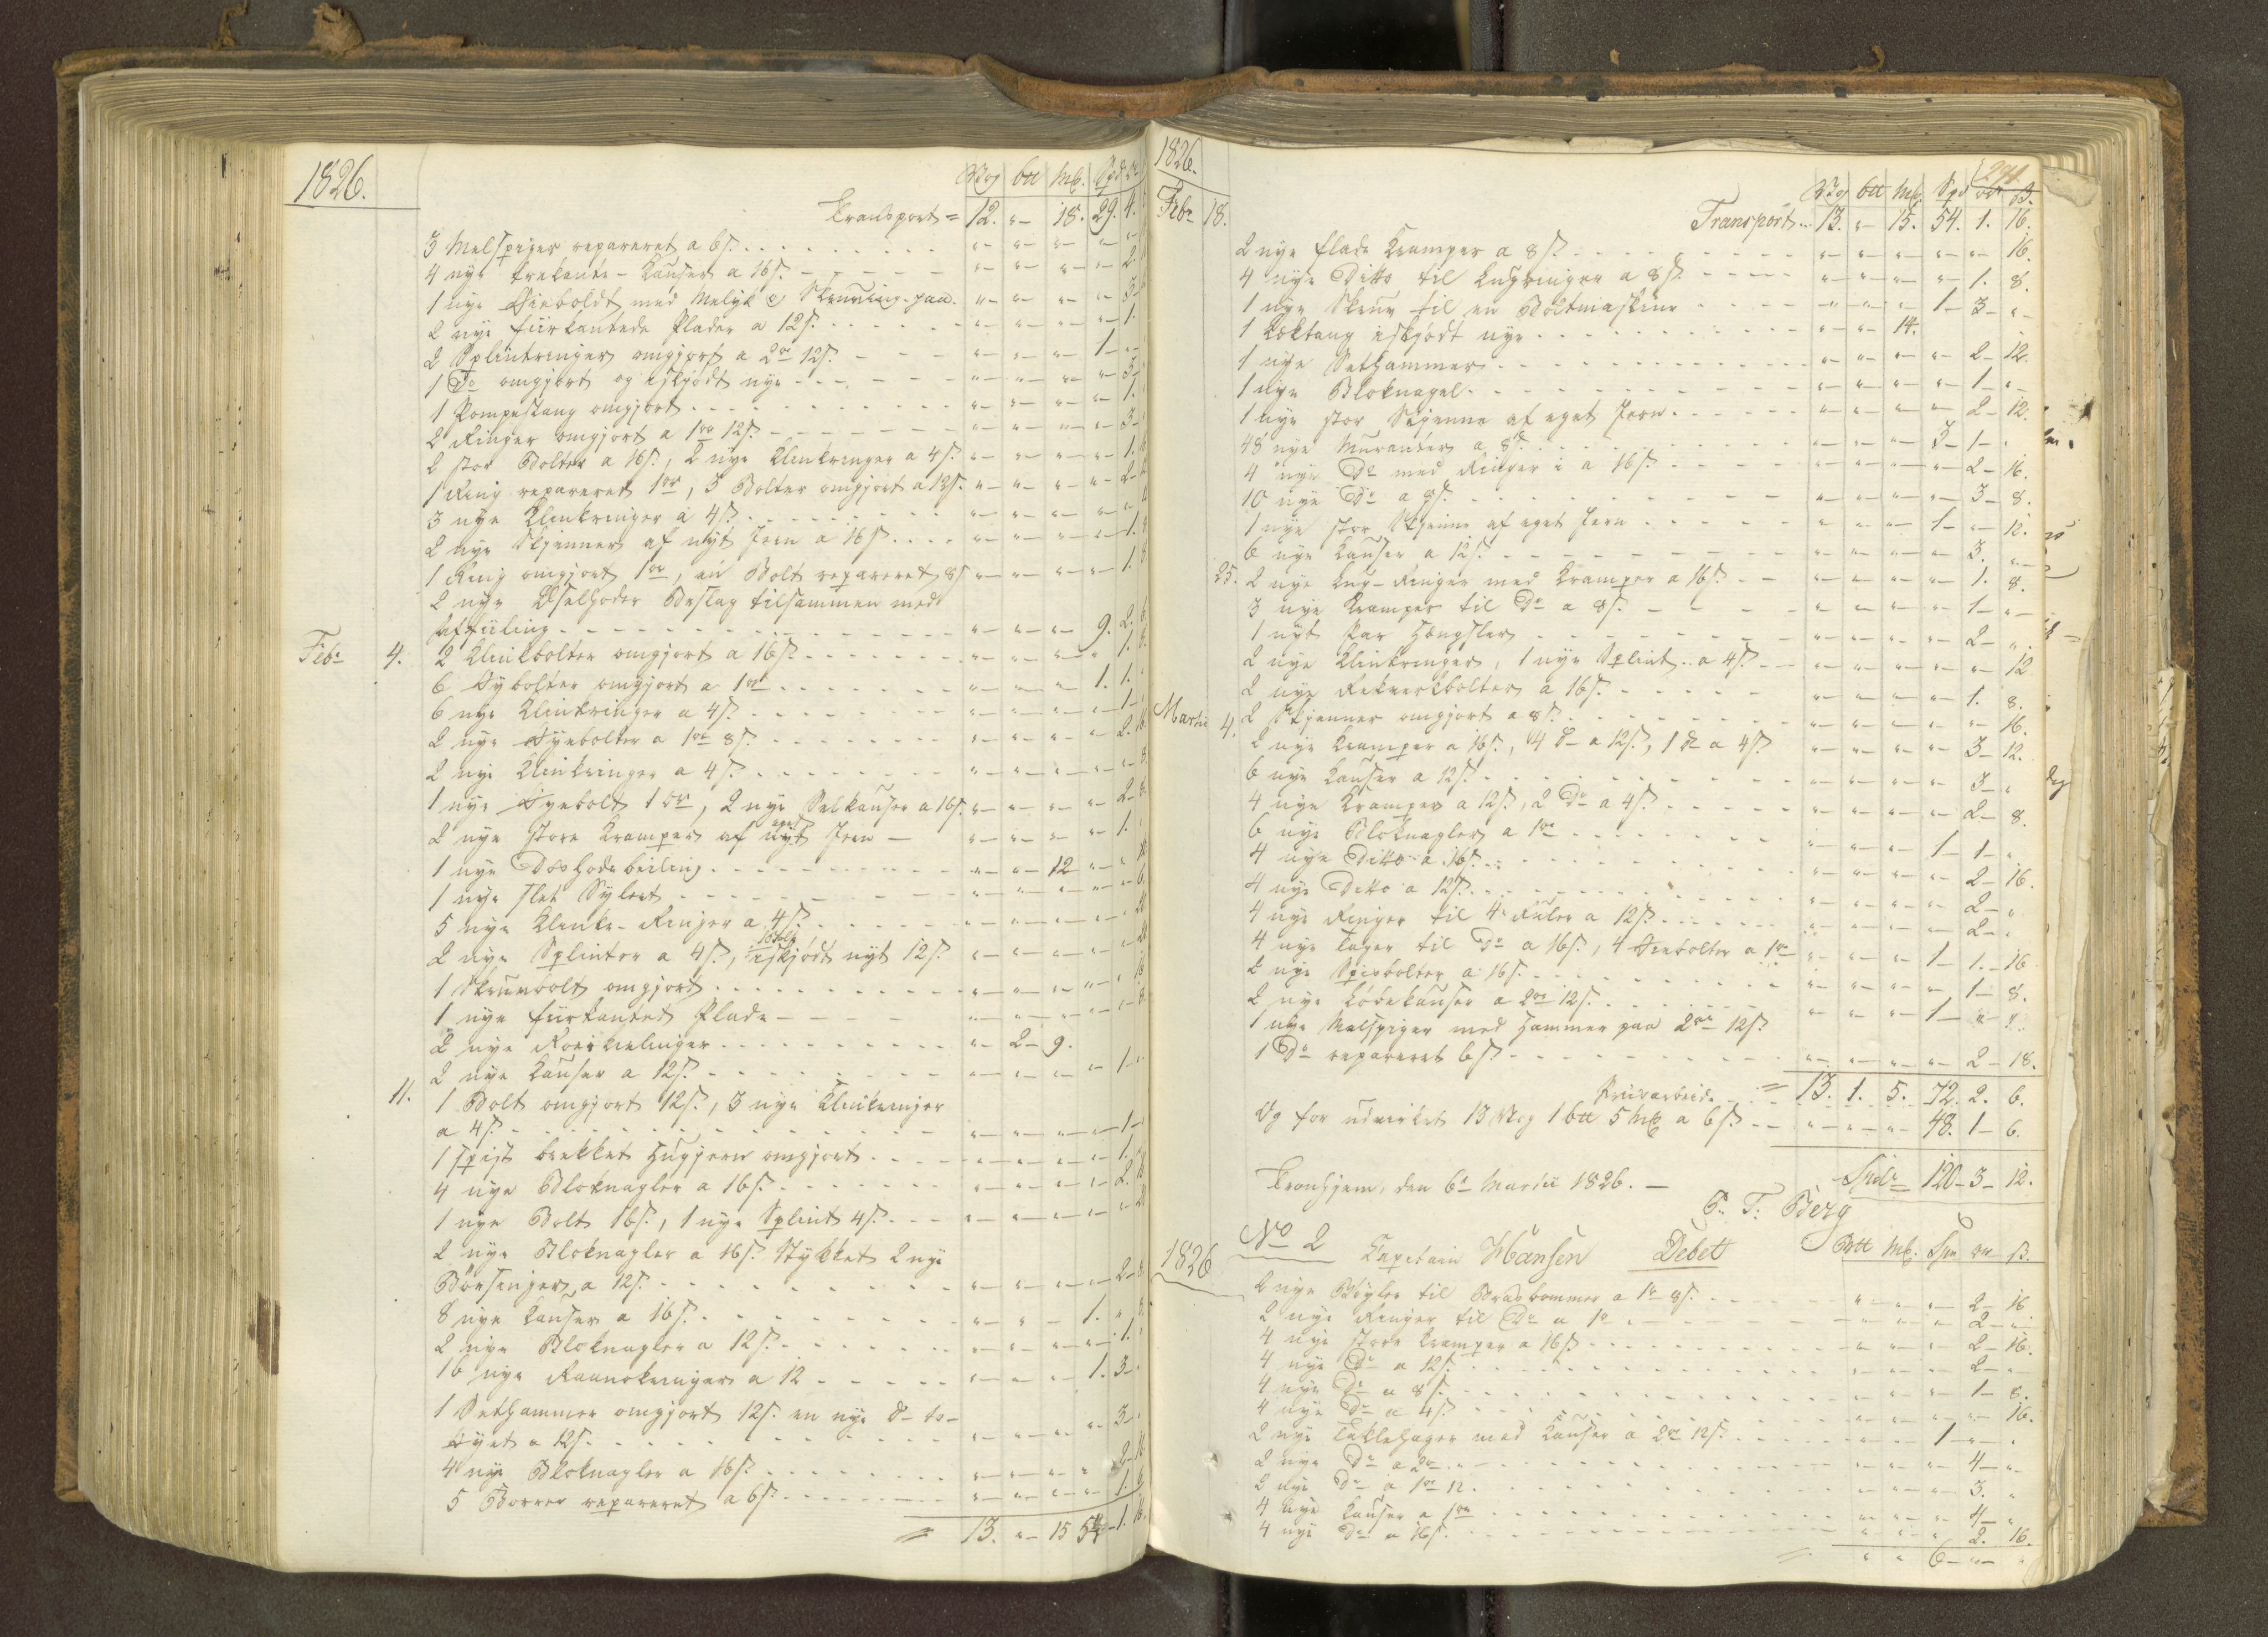 1826.
Wog btt Mk. Spd or
Transport = 12. "- 18. 29. 4.
3 Melspiger repareret a 6 s.
4 nye trekante-Kauser a 16 s. 2.
1 nye Øieboldt med 3
2 nye fiirkantede Plader a 12 s. 1.
2 Splintringer omgjort a 2 or 12 s. 1
1 Do omgjort og iskjødt nye 3
1 Pompestang omgjort 1.
2 Ringer omgjort a 1 or 12 s. 3
2 stor Bolter a 16 s., 2 nye Klinkringer a 4 s. 1.
1 Ring repareret 1 or, 3 Bolter omgjort a 12 s. 2
3 nye Klinkringer a 4 s.
2 nye Skjenner af nyt Jern a 16 s. 1.
1 Ring omgjort 1 or, en Bolt repareret 8 s 1. 8
2 nye Eselhoder Beslag tilsammen med
Affiiling 9. 2.
Febr 4. 2 Klinkbolter omgjort a 16 s. 1. 8
6 Øybolter omgjort a 1 or 1. 1.
6 nye Klinkringer a 4 s. 1
2 nye Øyebolter a 1 or 8 s. 2. 16
2 nye Klinkringer a 4 s. 8
1 nye Øyebolt 1 or, 2 nye Kauser a 16 s. 2. 8
2 nye store Kramper af eget Jern 1.
1 nye 12
1 nye slet
5 nye Klinke-Ringer a 4 s.
2 nye Splinter a 4 s., 1 Bolt iskjødt nyt 12 s.
1 Skruvbolt omgjort
1 nye fiirkantet Plade
2 nye 2 - 9.
2 nye Kauser a 12 s. 1
11. 1 Bolt omgjort 12 s., 3 nye Klinkringer
a 4 s. 1
1 spist brekket Hugjern omgjort 1.
4 nye Bloknagler a 16 s. 2. 16
1 nye Bolt 16 s., 1 nye Splint 4 s.
2 nye Bloknagler a 16 s. Stykket 2 nye
a 12 s. 2 8
8 nye Kauser a 16 s. 1.
2 nye Bloknagler a 12 s. 1.
16 nye a 12 1. 3
1 Sethammer omgjort 12 s. en nye
a 12 s. 3
4 nye Bloknagler a 16 s. 2 16
5 Borrer repareret a 6 s. 1. 6
= 13. "- 15 54 - 1. 16.
1826. 294.
Wog btt Mk. Spd or s.
Febr 18. Transport 13. "- 15. 54. 1. 16.
2 nye flade Kramper a 8 s. 16.
4 nye Ditto til Lugringer a 8 s. 1. 8.
1 nye Skruv til en Boltmaskine 1 - 3 -
1 Loktang iskjødt nye 14.
1 nye Sethammer 2 - 12.
1 nye Bloknagel 1
1 nye stor Skjenne af eget Jern 2 - 12.
48 nye Muranker a 8 s. 3 - 1 -
4 nye Do med Ringer i a 16 s. 2 - 16.
10 nye Do a 8 s. 3 - 8.
1 nye stor Skjenne af eget Jern 1 - "- 12.
6 nye Kauser a 12 s. 3.
25. 2 nye Lug-Ringer med Kramper a 16 s. 1. 8.
3 nye Kramper til Do a 8 s. 1
1 nyt Par Hengsler 2
2 nye Klinkringer, 1 nye Splint a 4 s. 12
2 nye Rekverkbolter a 16 s. 1. 8.
Martii 4. 2 Skjenner omgjort a 8 s. 16.
2 nye Kramper a 16 s., 4 Do a 12 s., 1 Do a 4 s. 3 - 12.
6 nye Kauser a 12 s. 3
4 nye Kramper a 12 s., 2 Do a 4 s. 2 - 8.
6 nye Bloknagler a 1 or 1 1
4 nye Ditto a 16 s. 2 - 16.
4 nye Ditto a 12 s. 2
4 nye Ringer til 4 Ruler a 12 s. 2
4 nye Tager til Do a 16 s., 4 Øiebolter a 1 or 1 - 1. - 16
2 nye Spirbolter a 16 s. 1 - 8.
2 nye Lødekauser a 2 or 12 s. 1
1 nye Melspiger med Hammer paa 2 or 12 s.
1 Do repareret 6 s. 2 - 18.
= 13. 1. 5. 72. 2. 6.
Og for udvirket 13 Wog 1 btt 5 Mk a 6 s. 48. 1 - 6.
Spdr 120 - 3 - 12.
Tronhjem, den 6te Martii 1826.
P. T. Berg
1826 No 2 Capitain Hansen Debet Btt Mk. Spd or s.
2 nye Bøyler til Brasbommer a 1 or 8 s. 2 - 16
2 nye Ringer til Do a 1 or 2
4 nye store Kramper a 16 s. 2 - 16.
4 nye Do a 12 s. 2
4 nye Do a 8 s. 1 - 8.
4 nye Do a 4 s. 16.
2 nye Taklehager med Kauser a 2 or 12 s. 1
2 nye Do a 2 or 4
2 nye Do a 1 or 12. 3.
4 nye Kauser a 1 or 4
4 nye Do a 16 s. 2. 16.
6